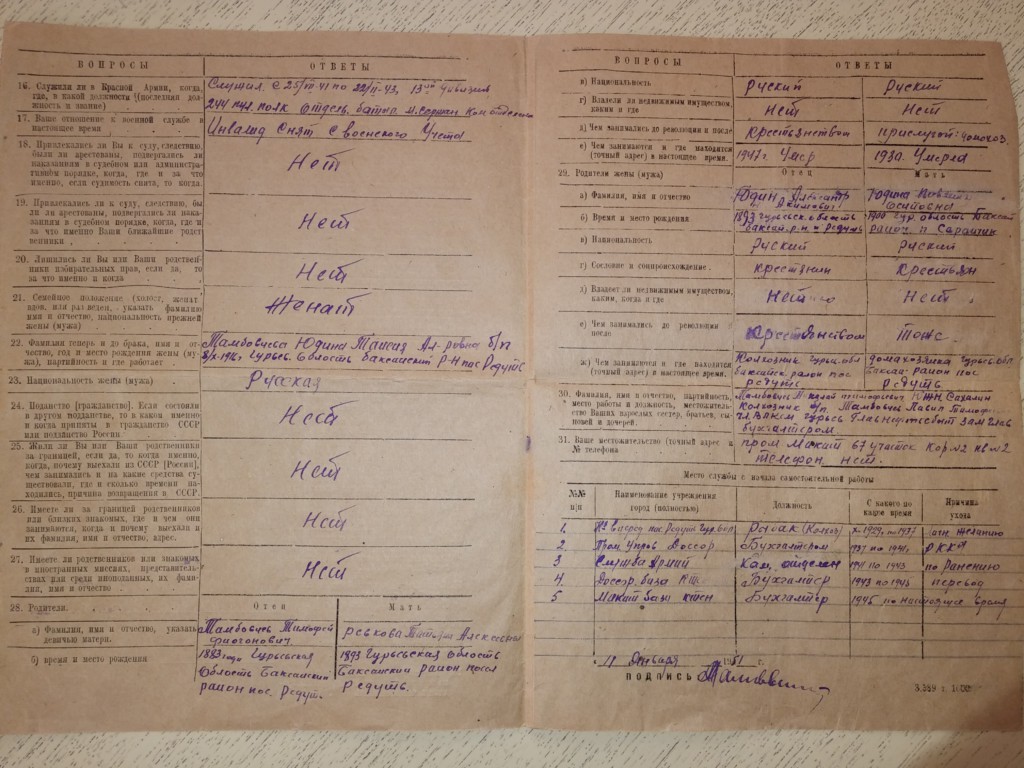 ВОПРОСЫ
ОТВЕТЫ
16. Служили ли в Красной Армии, когда,
где, в какой должности (последняя дол-
жность и звание)
Служил с 25/ 41 по 22/II-43, 13ая дивизия
244 пол. полк Отдель. бат Ком отделения
17. Ваше отношение к военной службе в
настоящее время
Инвалид Снят с военского Учета
18. Привлекались ли Вы к суду, следствию,
были ли арестованы, подвергались ли
наказаниям в судебном или администра-
тивном порядке, когда, где и за что
именно, если судимость снята, то когда.
Нет
19. Привлекались ли к суду, следствию, бы-
ли ли арестованы, подвергались ли нака-
заниям в судебном порядке, когда, где и
за что именно Ваши ближайшие родст-
венники
Нет
20. Лишались ли Вы или Ваши родствен-
ники избирательных прав, если да, то
за что именно и когда
Нет
21. Семейное положение (холост, женат
вдов, или разведен, указать фамилию
имя и отчество, национальность прежней
жены (мужа)
Женат
22. Фамилия теперь и до брака, имя и от-
чество, год и место рождения жены (му-
жа), партийность и где работает
Тамбовцева Юдина Таисия Ал-ровна б/п
8/X-1916 Гурьев. Область Баксайский р-н пос Редуть
23. Национальность жены (мужа)
Русская
24. Подданство [гражданство]. Если состояли
в другом подданстве, то в каком именно
и когда приняты в гражданство СССР
или подданство России
Нет
25. Жили ли Вы или Ваши родственники
за границей, если да, то когда именно,
когда, почему выехали из СССР [России],
чем занимались и на какие средства су-
ществовали, где и сколько времени на-
ходились, причина возвращения в СССР.
Нет
26. Имеете ли за границей родственников
или близких знакомых, где и чем они
занимаются, когда и почему выехали и
их фамилия, имя и отчество, адрес.
Нет
27. Имеете ли родственников или знакомых
в иностранных миссиях, представительс-
твах или среди иноподанных, их фами-
лия, имя и отчество
Нет
28. Родители.
Отец
Мать
а) Фамилия, имя и отчество, указать
девичью матери.
Тамбовцев Тимофей
Ревкова Алексеевна
б) время и место рождения
1883 года Гурьевская
Область Баксайский
район пос. Редут.
1893 Гурьевская Область
Баксайский район посел
Редуть.
ВОПРОСЫ
ОТВЕТЫ
в) Национальность
Руский
Руский
г) Владели ли недвижимым имуществом,
каким и где
Нет
Нет
д) Чем занимались до революции и после
Крестьянством
е) Чем занимаются и где находятся
(точный адрес) в настоящее время.
1947г. Умер
1930. Умерла
29. Родители жены (мужа)
Отец
Мать
а) Фамилия, имя и отчество
Юдин Александр
Юдина
Осиповна
б) Время и место рождения
1893 Гурьевск. область
баксай. р-н п Редуть
1900 Гур. область Баксай
район. п Сарайчик
в) Национальность
Руский
Руский
г) Сословие и соцпроисхождение.
Крестянин
Крестьян
д) Владеет ли недвижимым имуществом,
каким, когда и где
Нет
Нет
е) Чем занимались до революции и
после
Крестьянством
Тоже
ж) Чем занимаются и где находятся
(точный адрес) в настоящее время.
Колхозник Гурьев. обл
баксайск. район пос
редуть
домахозяйка Гурьев. обл
баксай район пос
Редуть
30. Фамилия, имя и отчество, партийность,
место работы и должность, местожитель-
ство Ваших взрослых сестер, братьев, сы-
новей и дочерей.
Тамбовцев Тимофеевич Южн Сахалин
Колхозник б/п. Тамбовцев Павил Тимоф.
чл. ВЛКСМ Гурьев Главнефтесбыт Зам глав
бухгалтером
31. Ваше местожительство (точный адрес и
№ телефона
пром. Макат 67 участок Кор №2 кв №2
телефон нет.
Место службы с начала самостоятельной работы
№№
п/п
Наименование учреждения
город (полностью)
Должность
С какого по
какое время
Причина
ухода
1. К-з вперед пос. Редуть Гур. обл
Рыбак (Колхоз)
X-1929, по 1937
личн Желанию
2 Пром Упров Доссор.
Бухгалтером
1937 по 1941,
РККА
3 Служба Армий
Ком, отделен
1941 по 1943
по Ранению
4 Доссор, база
Бухгалтер
1943 по 1945
перевод
5 Макат база
Бухгалтер
1945 по настоящее время
11 Января 1951 г.
ПОДПИСЬ
З.359 т. 1000